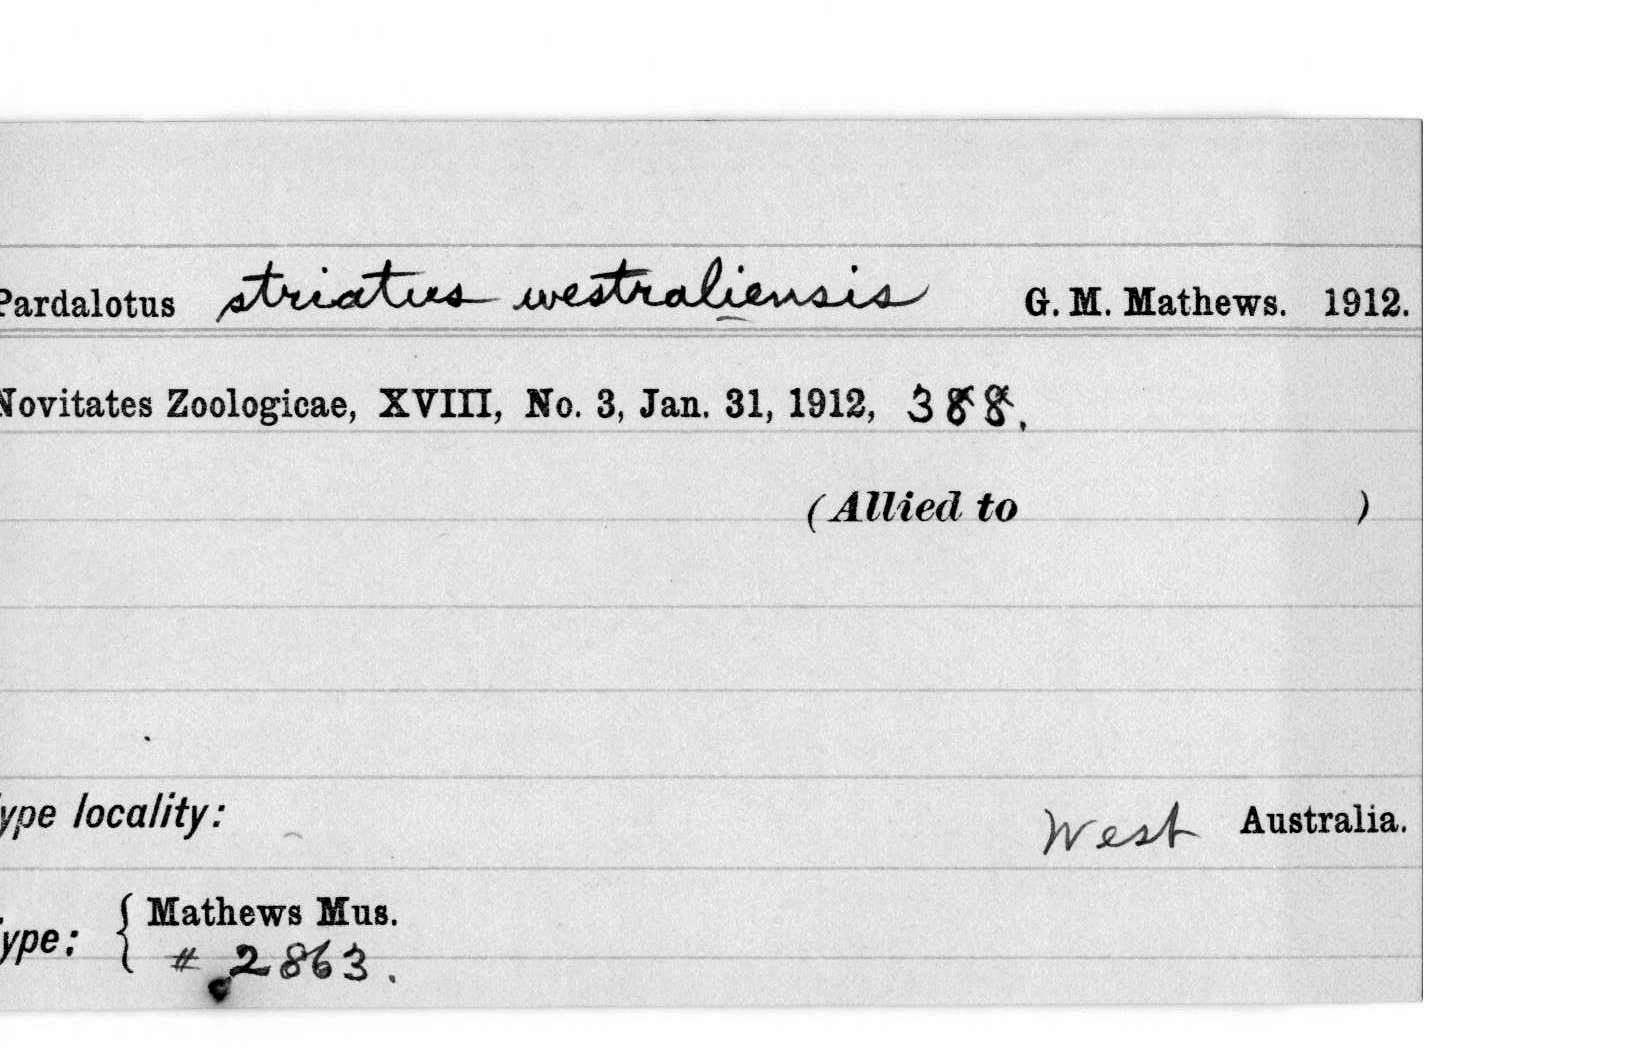 Pardalotus striatus westraliensis G. M. Mathews. 1912.
Novitates Zoologicae, XVIII, No. 3, Jan. 31, 1912, 388.
(Allied to )
ype locality: West Australia.
ype: { Mathews Mus.
# 2863.